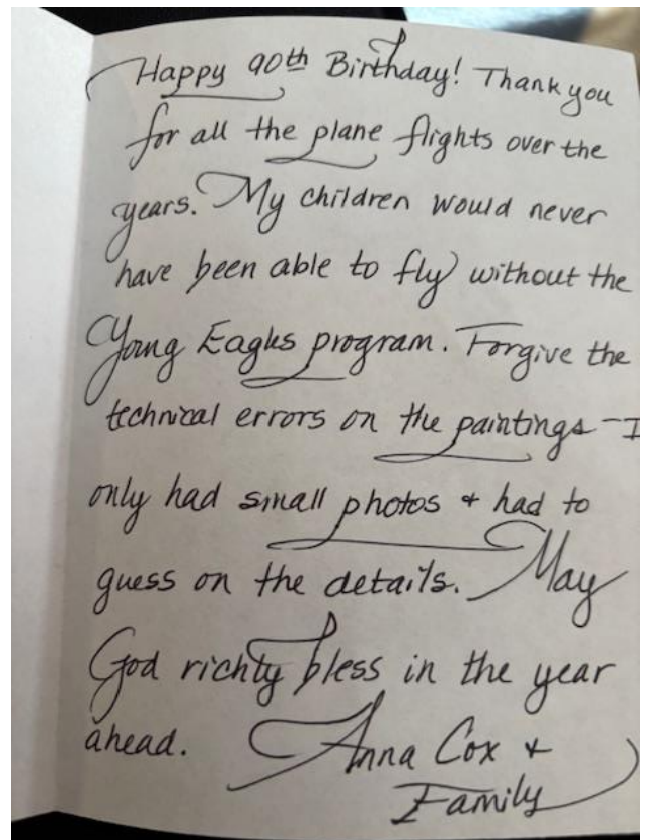 Happy 90th Birthday! Thank you
for all the plane flights over the
years. My children would never
have been able to fly without the
Young Eagles program. Forgive the
technical errors on the paintings - I
only had small photos + had to
guess on the details. May
God richly bless in the year
ahead. Anna Cox +
Family